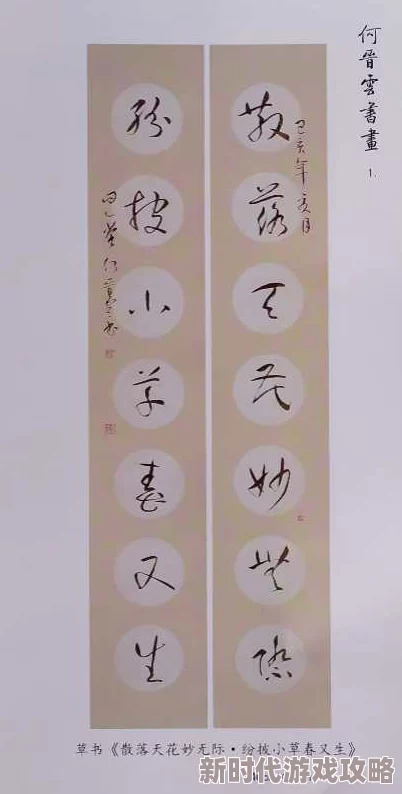 何晋雲書畫
1.
散落天花妙无際
己亥年亥月
纷披小草春又生
草书《散落天花妙无际·纷披小草春又生》
新时代游戏攻略